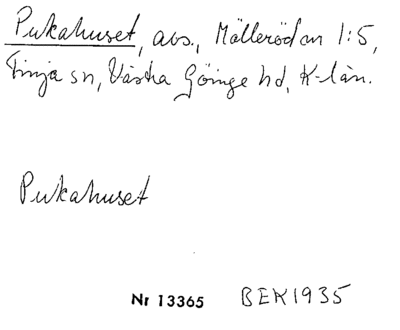 Pukahuset, avs., Mölleröd nr 1:5,
Finja sn, Västra Göinge hd, K-län.
Pukahuset
Nr 13365 BEK1935